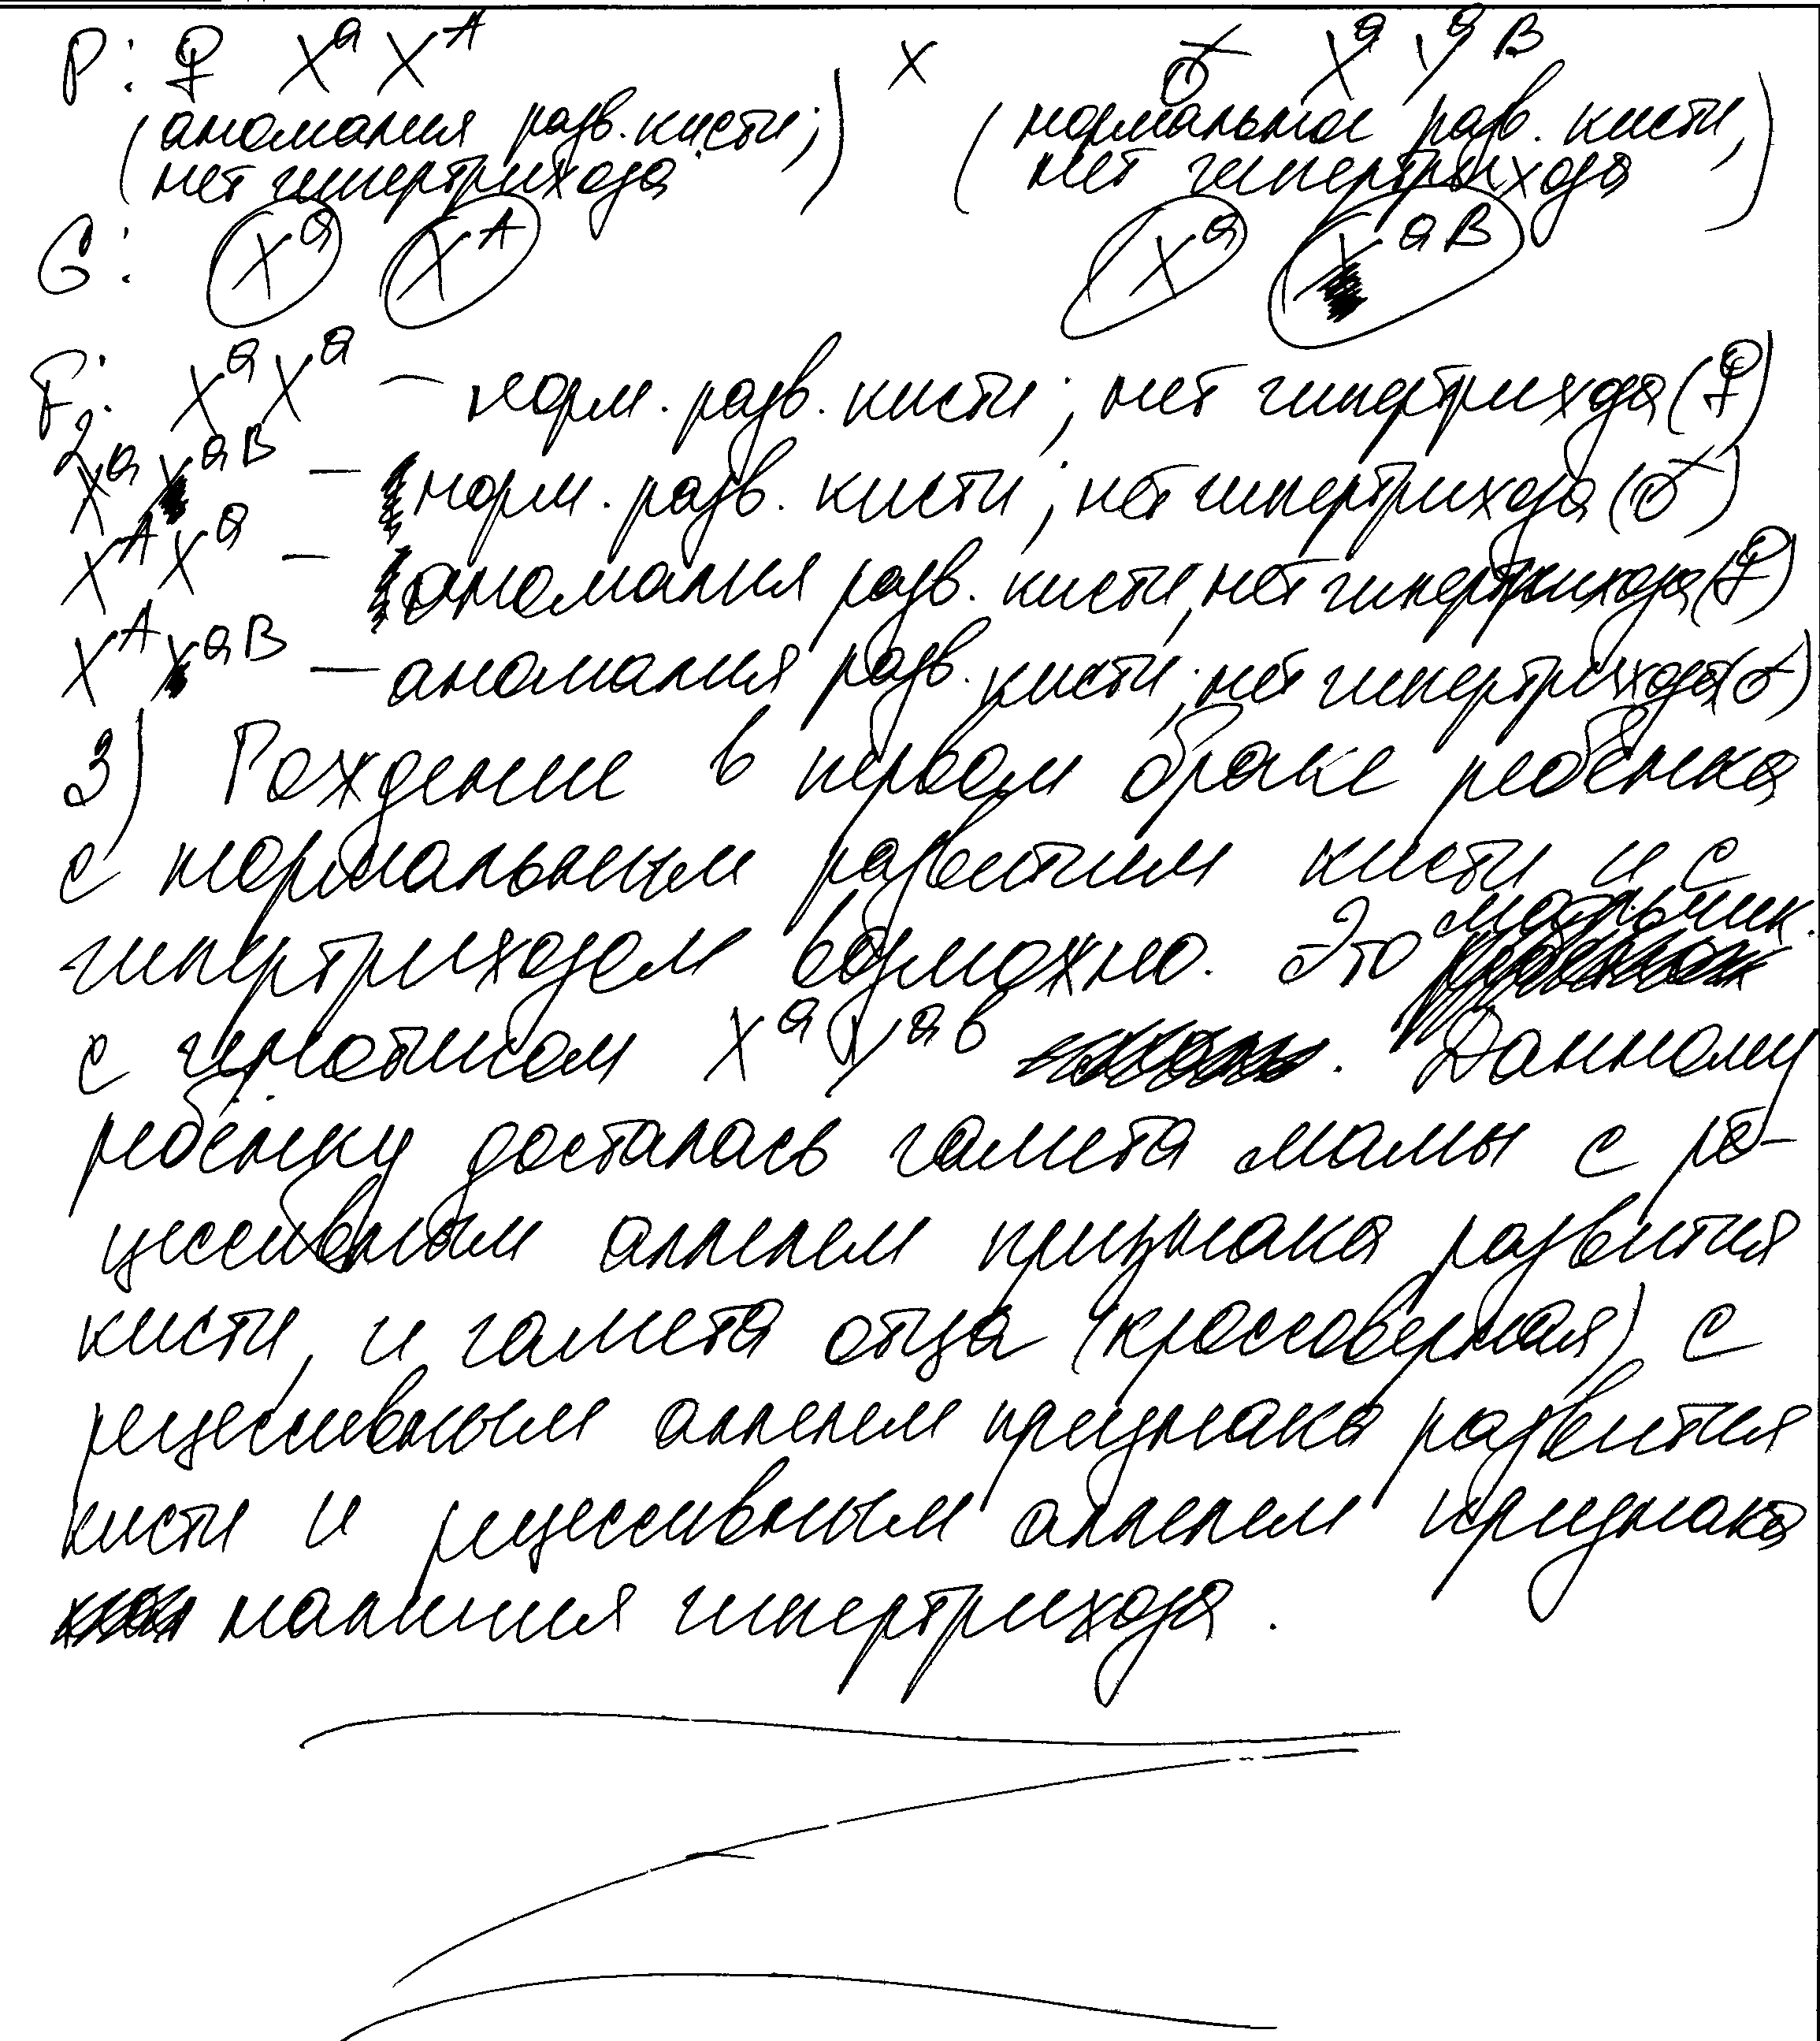 P: ♀ XᵃXᴬ x ♂ XᵃYᵃᴮ
(аномалия разв. кисти;) (нормальное разв. кисти,)
нет гипертрихоза нет гипертрихоза
G: Xᵃ Xᴬ Xᵃ Yᵃᴮ
F₂: XᵃXᵃ — норм. разв. кисти; нет гипертрихоза (♀)
XᵃYᵃᴮ — норм. разв. кисти; нет гипертрихоза (♂)
XᴬXᵃ — аномалия разв. кисти, нет гипертрихоза (♀)
XᴬYᵃᴮ — аномалия разв. кисти; нет гипертрихоза (♂)
3) Рождение в первом браке ребёнка
с нормальным развитием кисти и с
гипертрихозом возможно. Это мальчик
с генотипом XᵃYᵃᵇ. Данному
ребёнку досталась гамета мамы с ре-
цессивным аллелем признака развития
кисти, и гамета отца (кроссоверная) с
рецессивным аллелем признака развития
кисти и рецессивным аллелем признака
наличия гипертрихоза.